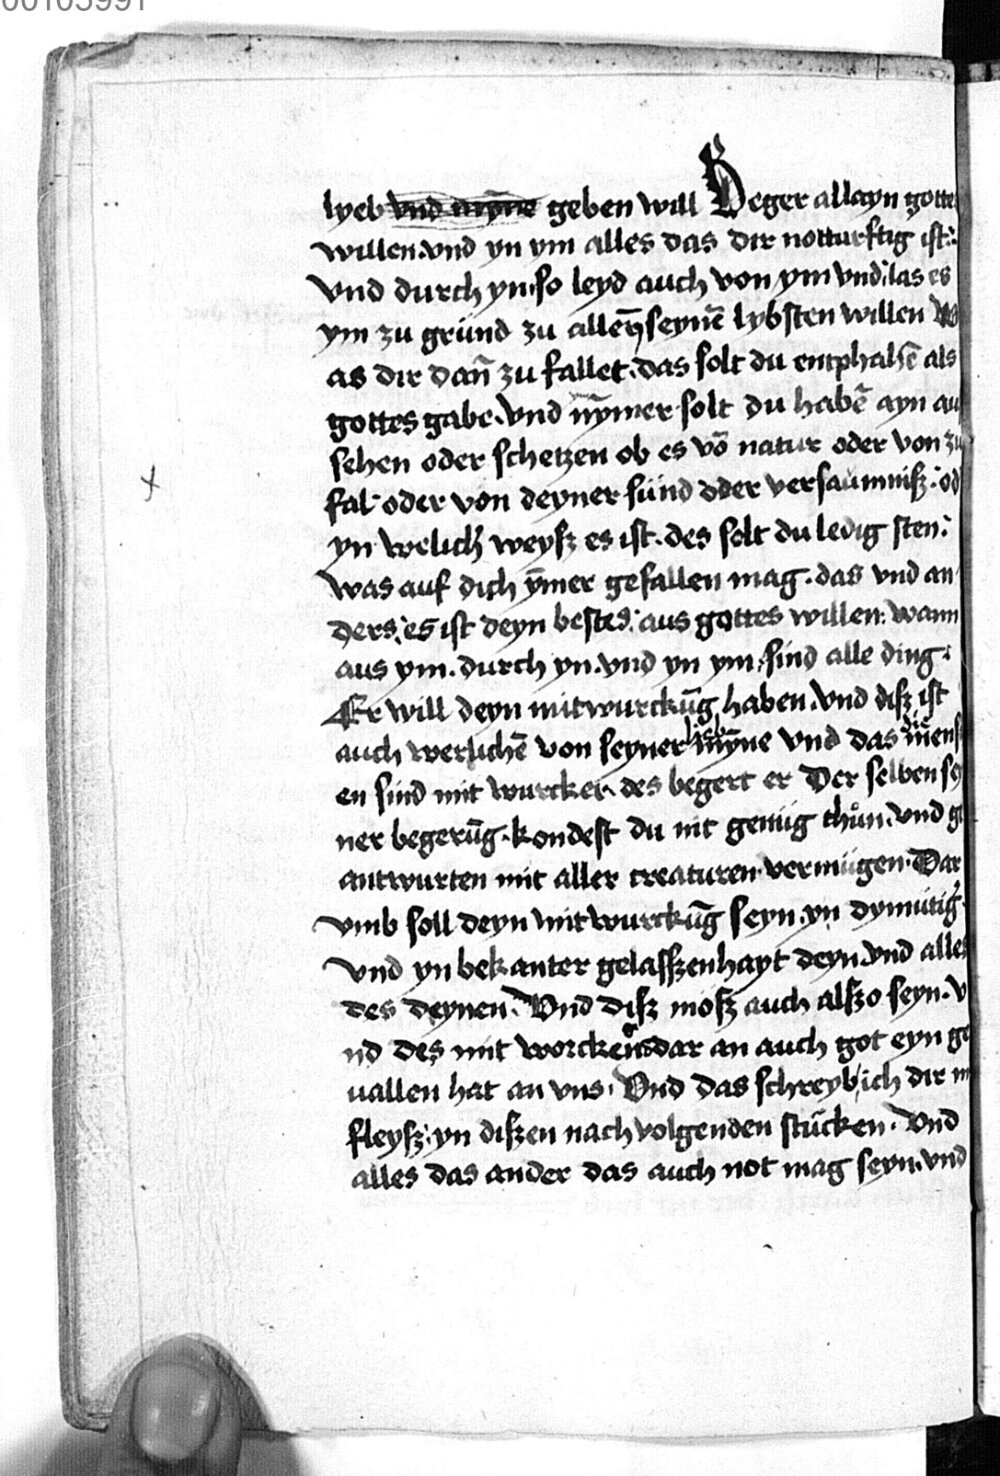 00103991
lyeb vnd mȳne geben will Beger allayn gotte
willen. vnd yn ym alles das dir notturftig ist:
vnd durch yn. so leyd auch von ym vnd las es
ym zu grund zu allen seynē lybsten willen W
as dir dañ zu fallet. das solt du entphahē als
gottes gabe. vnd nȳmer solt du habē ayn au
sehen oder schetzen ob es vō natur oder von zu
fal oder von deyner sünd oder versaumniß. od
yn welich weyß es ist. des solt du ledig sten.
was auf dich ȳmer gefallen mag. das vnd an
ders. es ist deyn bestes. aus gottes willen: wann
aus ym. durch yn. vnd yn ym. sind alle ding.
Er will deyn mitwurckūg haben. vnd diß ist
auch werlichē von seyner lieb mȳne vnd das die mēns
en sind mit wurcker. des begert er Der selben sey
ner begerūg. kondest du nit genüg thůn. vnd g
antwurten mit aller creaturen vermügen. Dar
vmb soll deyn mitwurckūg seyn. yn dymütig
vnd yn bekanter gelasßenhayt deyn. vnd alles
des deynen. Vnd diß moß auch alßo seyn. v
nd des mit worckens dar an auch got eyn ge
uallen hat an vns. Vnd das schreyb ich dir m
fleyß. yn dißen nachvolgenden stücken. Vnd
alles das ander das auch not mag seyn. vnd